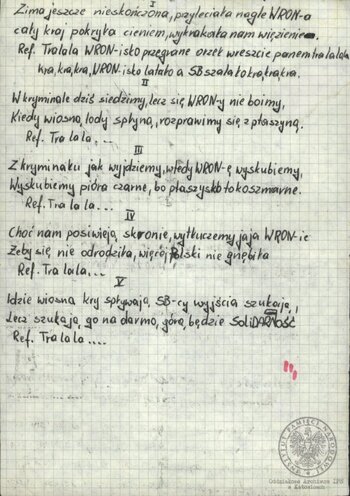 I
Zima jeszcze nieskończona, przyleciała nagle WRON-a
cały kraj pokryła cieniem, wykrakała nam więzienie.
Ref. Tralala WRON-isko przegrane orzeł wreszcie panem tralalala
kra, kra, kra, WRON-isko latało a SB szalało kra, kra kra.
II
W kryminale dziś siedzimy, lecz się WRON-y nie boimy,
Kiedy wiosną, lody spłyną, rozprawimy się z ptaszyną.
Ref. Tra la la....
III
Z kryminału jak wyjdziemy, wtedy WRON-ę wyskubiemy,
Wyskubiemy pióra czarne, bo ptaszysko to koszmarne.
Ref. Tra la la...
IV
Choć nam posiwieją skronie, wytłuczemy jaja WRON-ie
Żeby się nie odrodziła, więcej Polski nie gnębiła
Ref. Tra la la...
V
Idzie wiosna kry spływają, SB-cy wyjścia szukają,
Lecz szukają, go na darmo, górą będzie SoliDARNOŚĆ
Ref. Tra la la....
INSTYTUT PAMIĘCI NARODOWEJ
Oddziałowe Archiwum IPN
w Katowicach